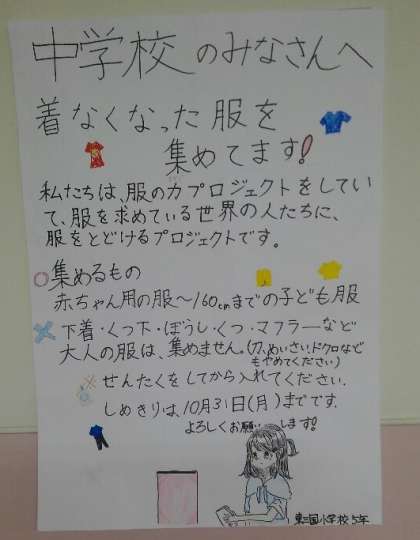 中学校のみなさんへ
着なくなった服を
集めてます!
私たちは、服の力プロジェクトをしてい
て、服を求めている世界の人たちに、
服をとどけるプロジェクトです。
集めるもの
赤ちゃん用の服〜160cmまでの子ども服
下着・くつ下・ぼうし・くつ・マフラーなど
大人の服は、集めません。(刀、めいさい、ドクロなど
もやめてください)
せんたくをしてから入れてください.
しめきりは、10月31日(月)までです.
よろしくお願いします!
東三国小学校5年